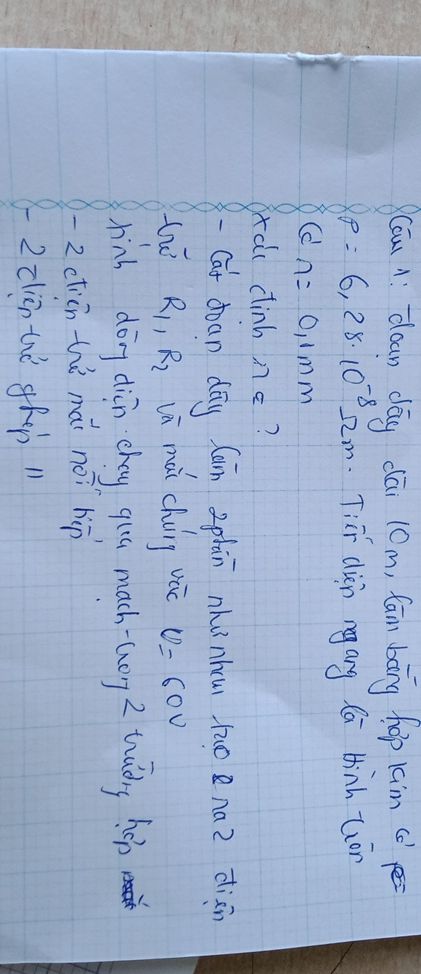 Câu 1: đoạn dây dài 10m, làm bằng hợp kim có
ρ = 6,28.10⁻⁸ Ωm. Tiết diện ngang là hình tròn
có r = 0,1mm
xác định r = ?
- Cắt đoạn dây làm 2 phần như nhau tạo ra 2 điện
trở R₁, R₂ và mắc chúng vào U = 60V
tính dòng điện chạy qua mạch trong 2 trường hợp
- 2 điện trở mắc nối tiếp
- 2 điện trở ghép //